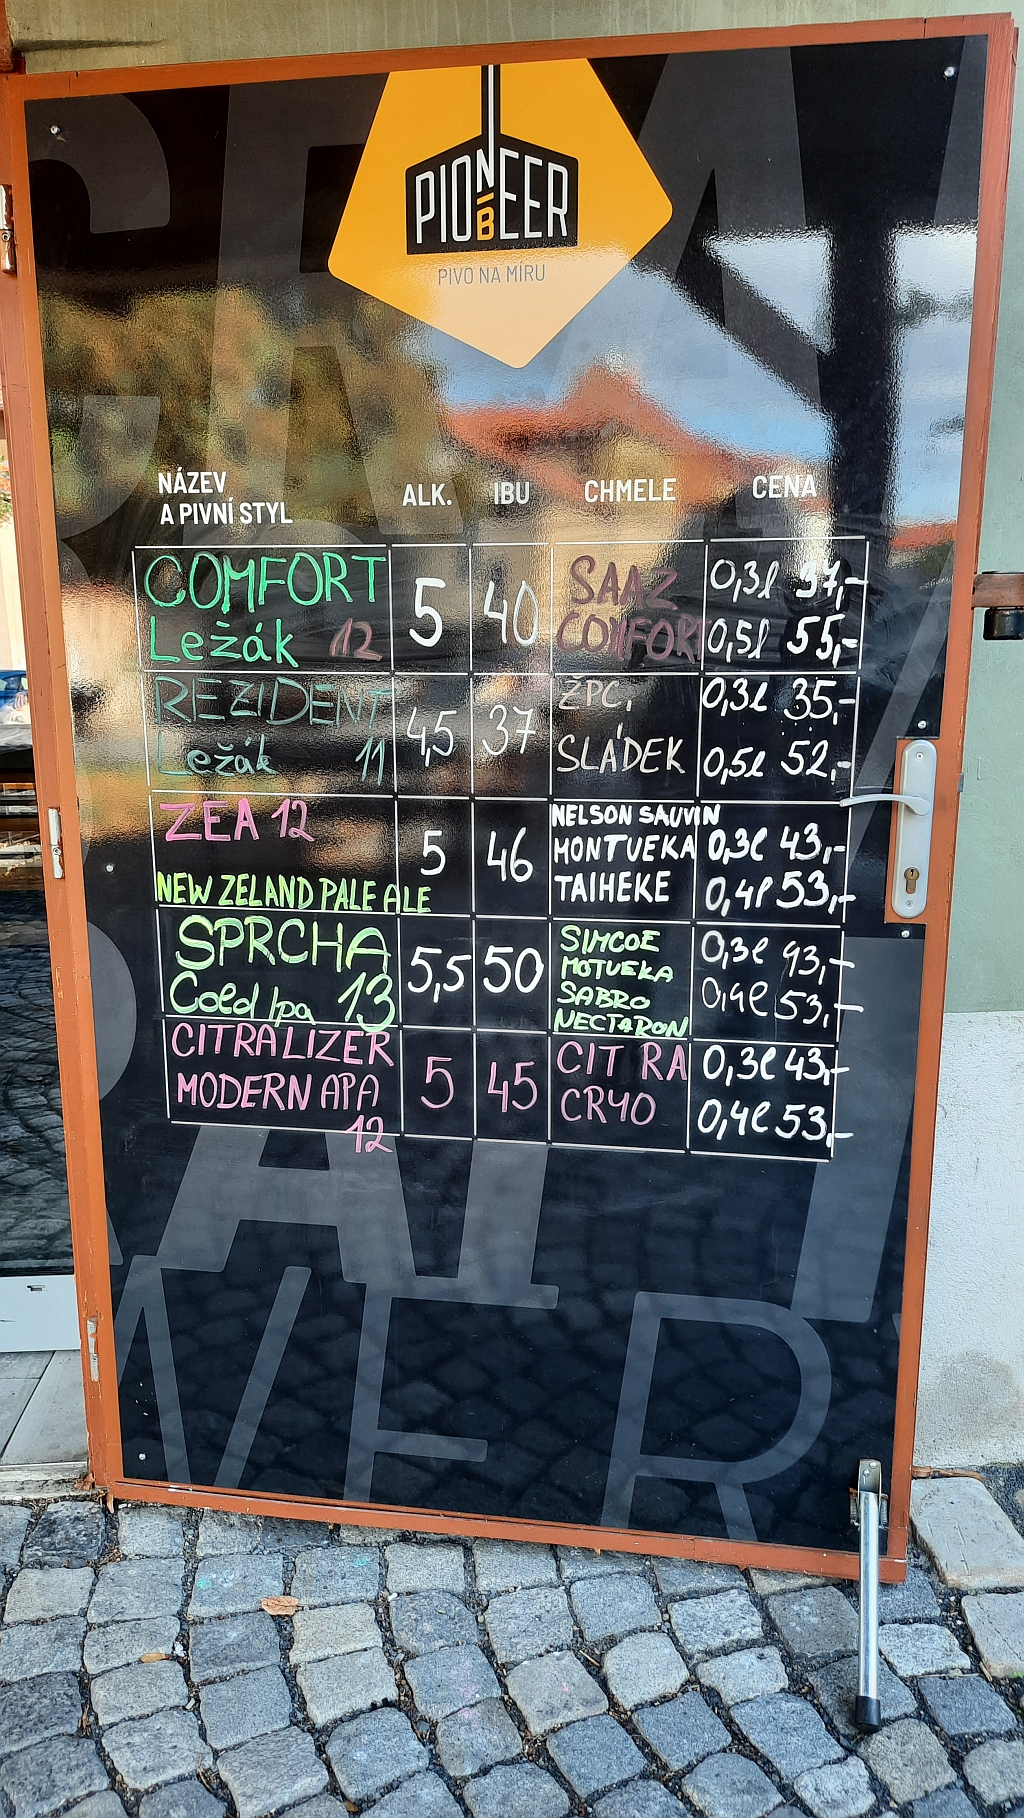 PIONEER
BEER
PIVO NA MÍRU
NÁZEV
A PIVNÍ STYL
ALK.
IBU
CHMELE
CENA
COMFORT
Ležák 12
5
40
SAAZ
COMFORT
0,3l 37,-
0,5l 55,-
REZIDENT
Ležák 11
4,5
37
ŽPČ,
SLÁDEK
0,3l 35,-
0,5l 52,-
ZEA 12
NEW ZELAND PALE ALE
5
46
NELSON SAUVIN
MONTUEKA
TAIHEKE
0,3l 43,-
0,4l 53,-
SPRCHA
Cold Ipa 13
5,5
50
SIMCOE
MOTUEKA
SABRO
NECTARON
0,3l 43,-
0,4l 53,-
CITRALIZER
MODERN APA
12
5
45
CITRA
CRYO
0,3l 43,-
0,4l 53,-